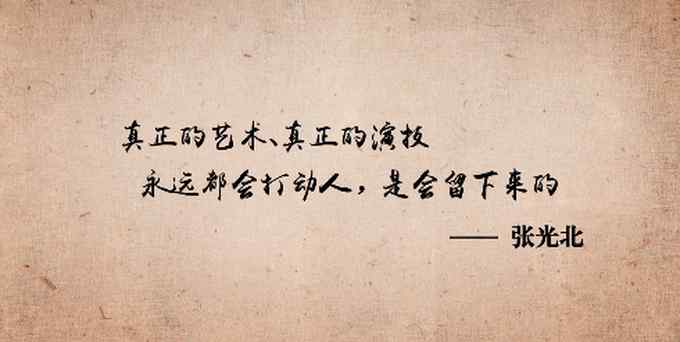 真正的艺术、真正的演技
永远都会打动人，是会留下来的
—— 张光北